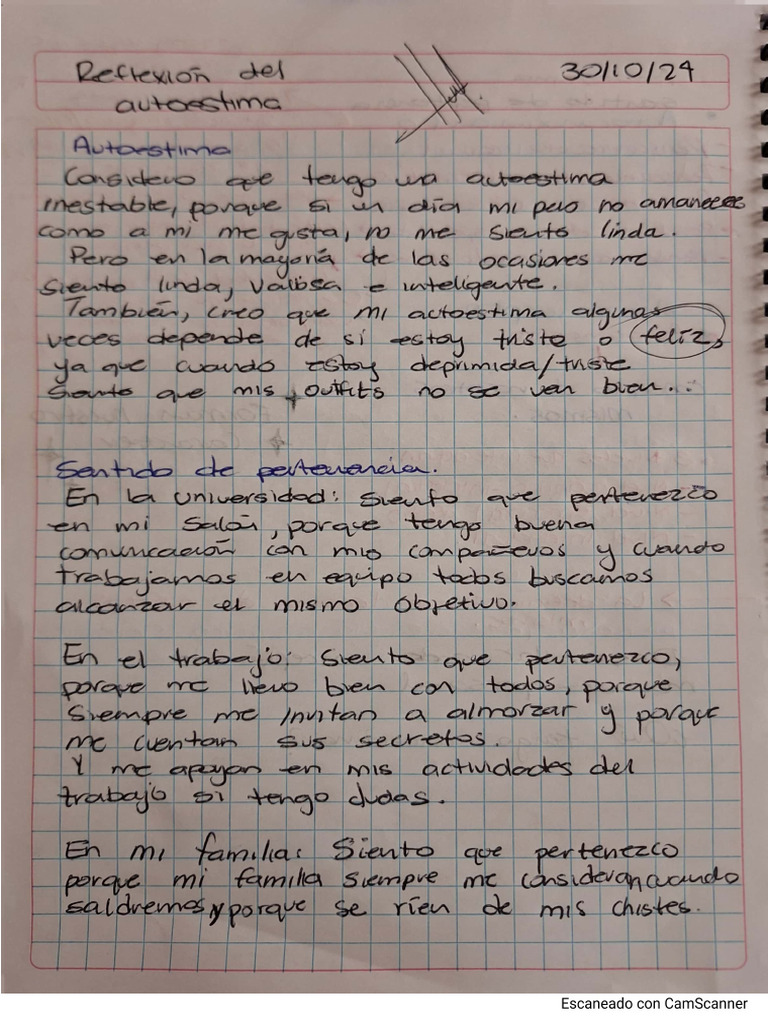 Reflexión del
autoestima
30/10/24
Autoestima
Considero que tengo una autoestima
inestable, porque si un día mi pelo no amanece
como a mi me gusta, no me siento linda.
Pero en la mayoría de las ocasiones me
siento linda, valiosa e inteligente.
También, creo que mi autoestima algunas
veces depende de si estoy triste o feliz,
ya que cuando estoy deprimida/triste
siento que mis outfits no se ven bien...
Sentido de pertenencia.
En la universidad: siento que pertenezco
en mi salón, porque tengo buena
comunicación con mis compañeros y cuando
trabajamos en equipo todos buscamos
alcanzar el mismo objetivo.
En el trabajo: siento que pertenezco,
porque me llevo bien con todos, porque
siempre me invitan a almorzar y porque
me cuentan sus secretos.
Y me apoyan en mis actividades del
trabajo si tengo dudas.
En mi familia: Siento que pertenezco
porque mi familia siempre me consideran cuando
saldremos y porque se ríen de mis chistes.
Escaneado con CamScanner